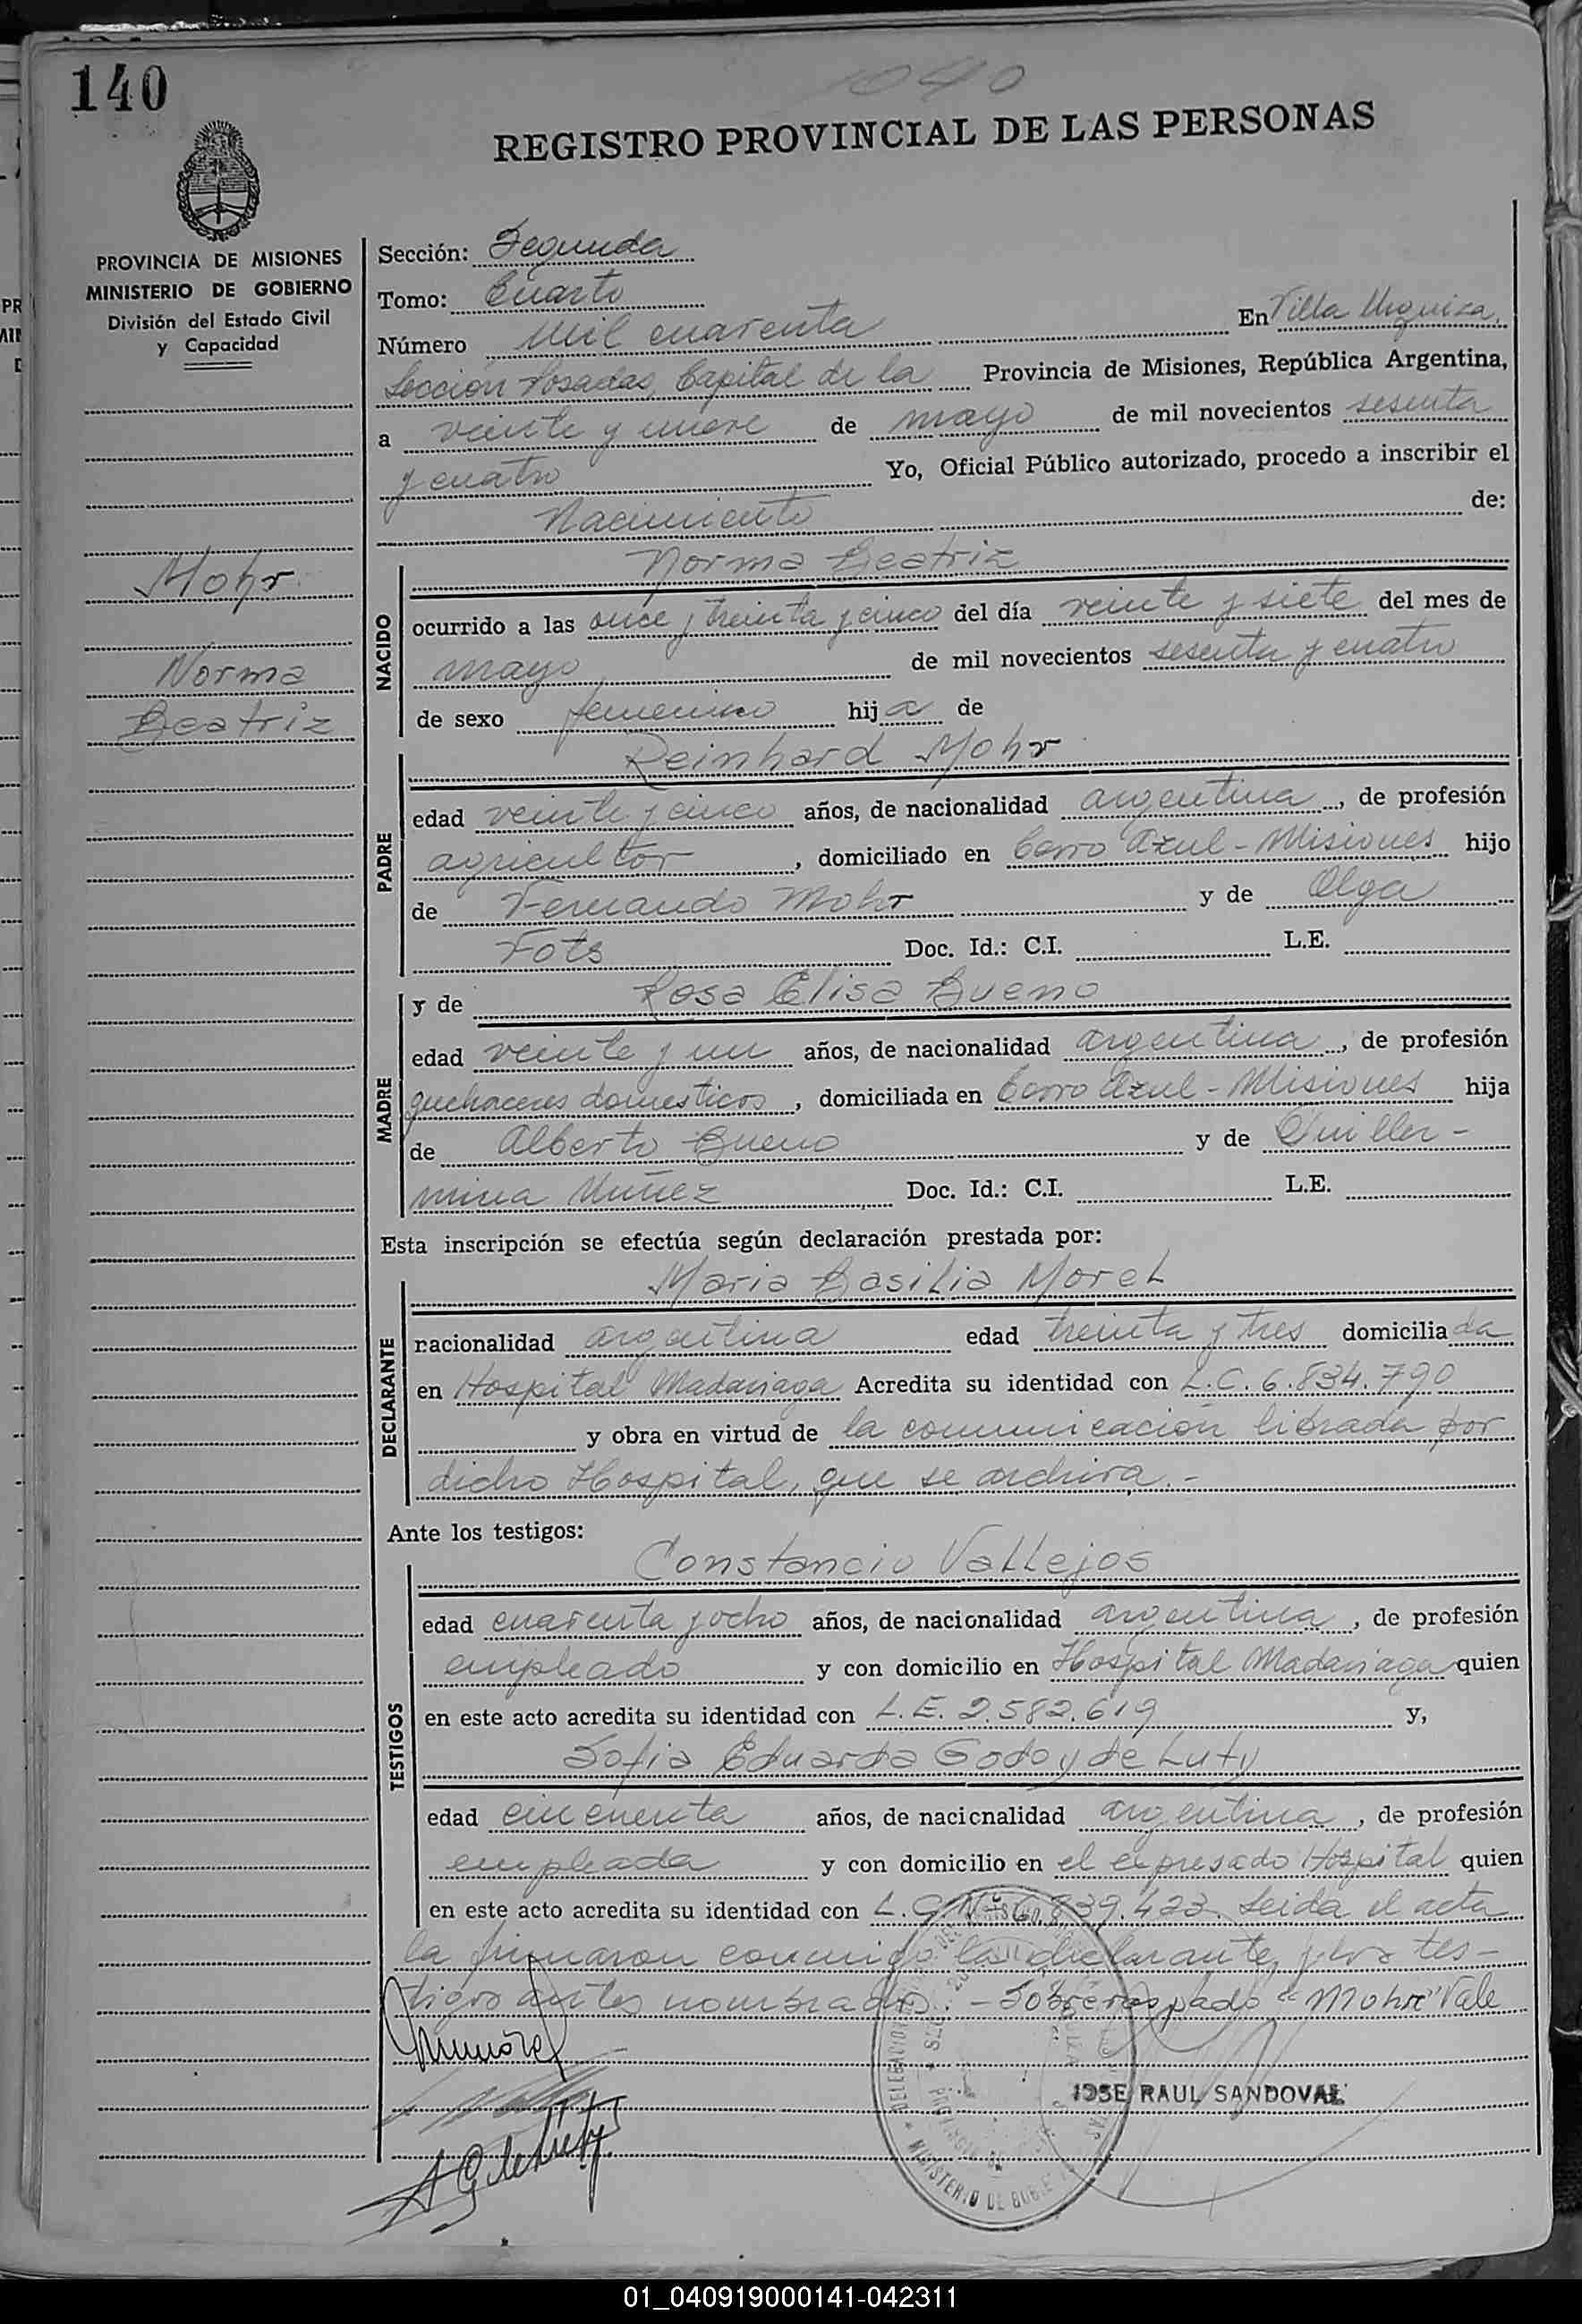 140
1040
REGISTRO PROVINCIAL DE LAS PERSONAS
PROVINCIA DE MISIONES
MINISTERIO DE GOBIERNO
División del Estado Civil
y Capacidad
Mohr
Norma
Beatriz
Sección: Segunda
Tomo: Cuarto
Número Mil cuarenta En Villa Urquiza,
Sección Posadas, Capital de la Provincia de Misiones, República Argentina,
a veinte y nueve de mayo de mil novecientos sesenta
y cuatro Yo, Oficial Público autorizado, procedo a inscribir el
Nacimiento de:
NACIDO
Norma Beatriz
ocurrido a las once y treinta y cinco del día veinte y siete del mes de
mayo de mil novecientos sesenta y cuatro
de sexo femenino hija de
PADRE
Reinhard Mohr
edad veinte y cinco años, de nacionalidad argentina, de profesión
agricultor, domiciliado en Cerro Azul - Misiones hijo
de Fernando Mohr y de Olga
Fots Doc. Id.: C.I. L.E.
MADRE
y de Rosa Elisa Bueno
edad veinte y un años, de nacionalidad argentina, de profesión
quehaceres domesticos, domiciliada en Cerro Azul - Misiones hija
de Alberto Bueno y de Guiller-
mina Nuñez Doc. Id.: C.I. L.E.
Esta inscripción se efectúa según declaración prestada por:
DECLARANTE
Maria Basilia Morel
nacionalidad argentina edad treinta y tres domiciliada
en Hospital Madariaga Acredita su identidad con L.C. 6.834.790
y obra en virtud de la comunicación librada por
dicho Hospital, que se archiva.-
Ante los testigos:
TESTIGOS
Constancio Vallejos
edad cuarenta y ocho años, de nacionalidad argentina, de profesión
empleado y con domicilio en Hospital Madariaga quien
en este acto acredita su identidad con L.E. 2.582.619 y,
Sofia Eduarda Godoy de Luty
edad cincuenta años, de nacionalidad argentina, de profesión
empleada y con domicilio en el expresado Hospital quien
en este acto acredita su identidad con L.C. Nº 6.839.423. Leida el acta
la firmaron conmigo la declarante, y los tes-
tigos antes nombrados.- Sobreraspado "Mohr" Vale
JOSE RAUL SANDOVAL
MINISTERIO DE GOB
01_040919000141-042311